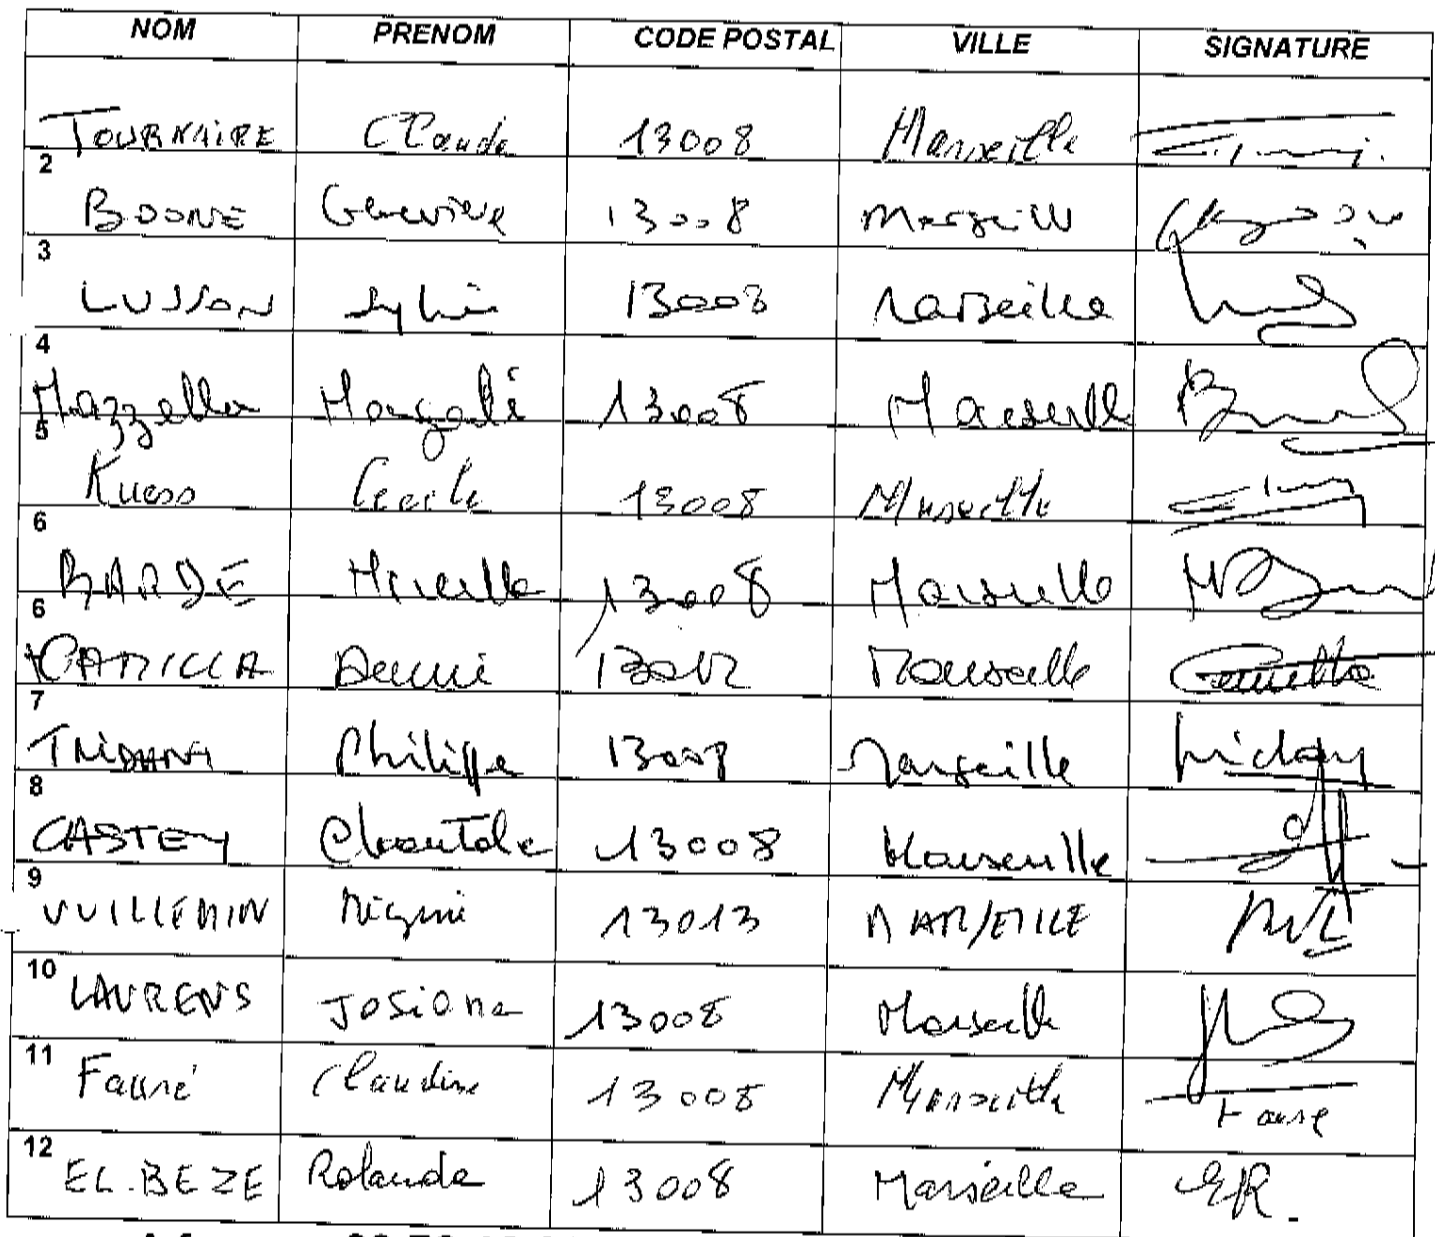 NOM PRENOM CODE POSTAL VILLE SIGNATURE
TOURNAIRE Claude 13008 Marseille
2 BOONE Geneviève 13008 Marseill
3 LUSSON Sylvie 13008 Marseille
4 Mazzella Magali 13008 Marseille
5 Kuess Cecile 13008 Marseille
6 BARDE Mireille 13008 Marseille
6 CAMILLA 13012 Marseille Camilla
7 Philippe 13008 Marseille
8 CASTEY Chantale 13008 Marseille
9 VUILLEMIN 13013 MARSEILLE
10 LAURENS Josiane 13008 Marseille
11 Fauré Claudine 13008 Marseille Faure
12 EL.BEZE Rolande 13008 Marseille ER.